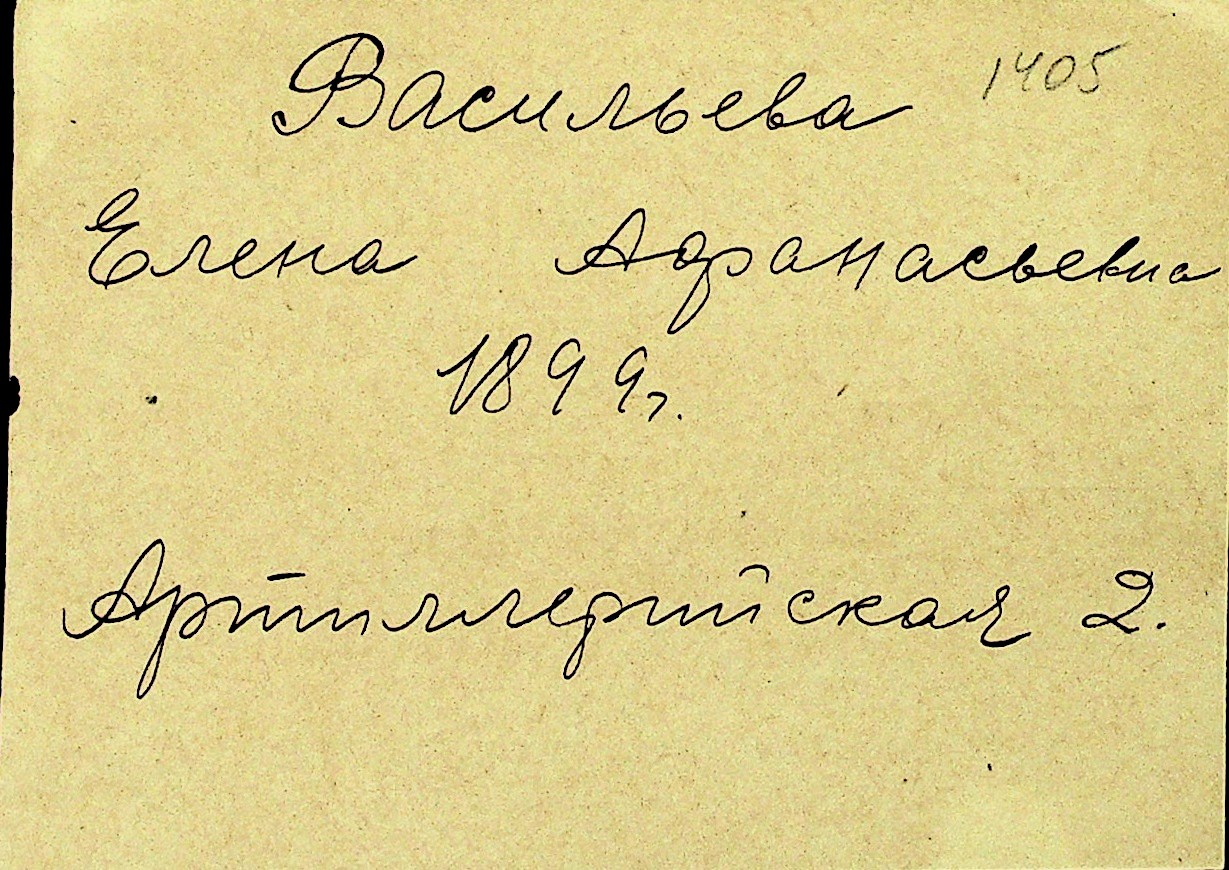 Васильева 1405
Елена Афанасьевна
1899г.
Артиллерийская 2.